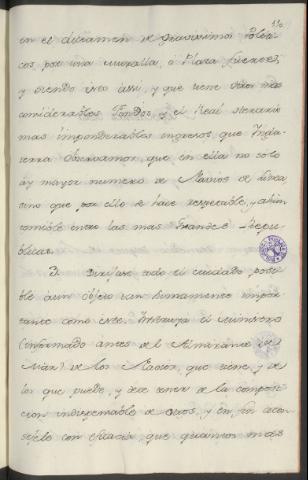 en el dictamen de gravissimos Politi-
cos, por una muralla, ó Plaza fuerte;
y siendo esto assi, y que tiene otros mas
considerables Fondos, y el Real Herario
mas imponderables ingresos que Ingla-
terra. Observamos, que en ella no solo
ay mayor numero de Navios de linea,
sino que por ello se hace respetable, y a
entre las mas Grandes Repu-
blicas.
3. Dirijase todo el cuidado posi-
ble á un objeto tan sumamente impor-
tante como este. Instruya el Ministro
(informado antes de el Almirante de
Mar) de los Navios, que tiene, y de
los que puede, y debe tener de la composi-
cion indispensable de otros, y en fin acon-
sejele con eficacia, que quantos mas